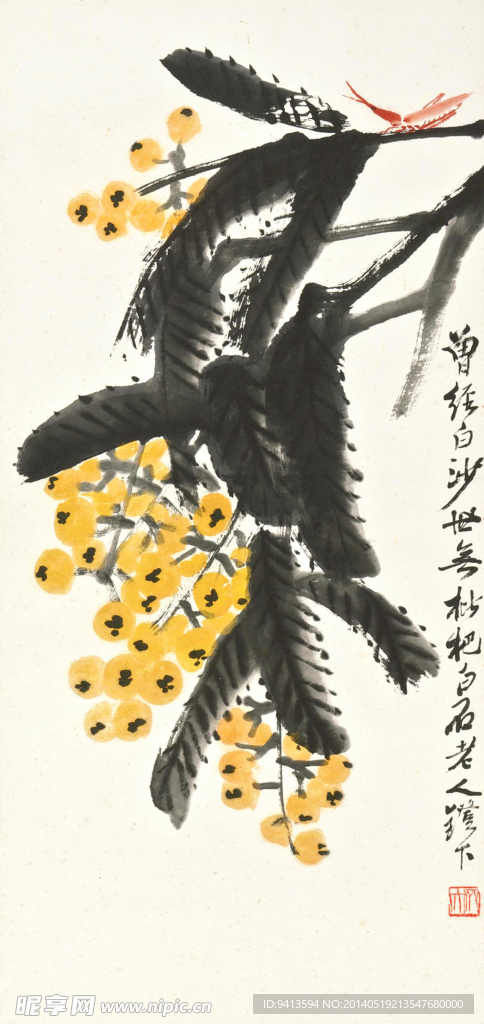 曾经白沙世無枇杷白石老人鐙下
昵享网 www.nipic.cn
ID:9413594 NO:20140519213547680000